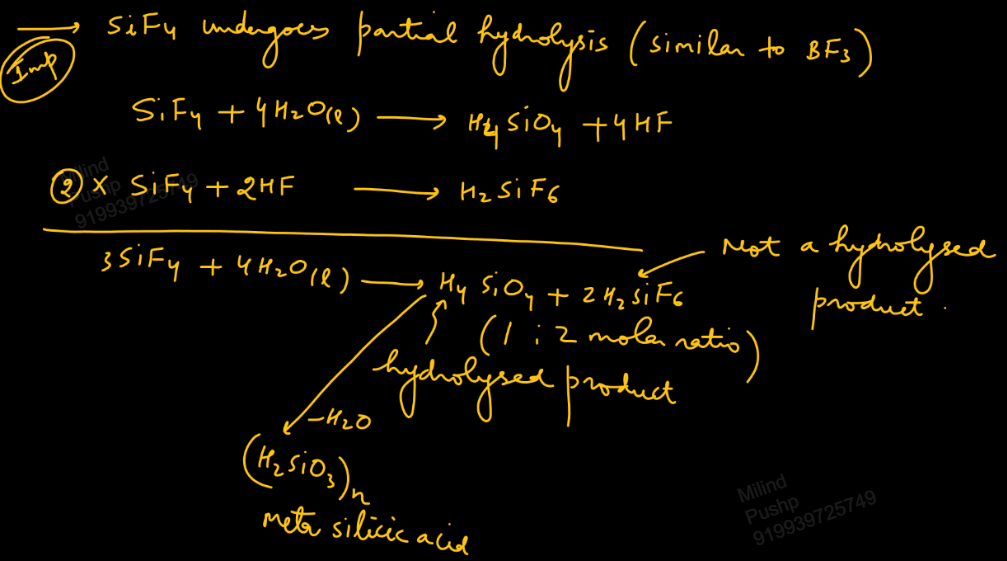 → SiF4 undergoes partial hydrolysis (similar to BF3)
Imp
SiF4 + 4H2O(l) → H4SiO4 + 4HF
② × SiF4 + 2HF → H2SiF6
3SiF4 + 4H2O(l) → H4SiO4 + 2H2SiF6
Not a hydrolysed
product.
(1 : 2 molar ratio)
hydrolysed product
-H2O
(H2SiO3)n
Meta silicic acid
Milind
Pushp
919939725749
Milind
Pushp
919939725749